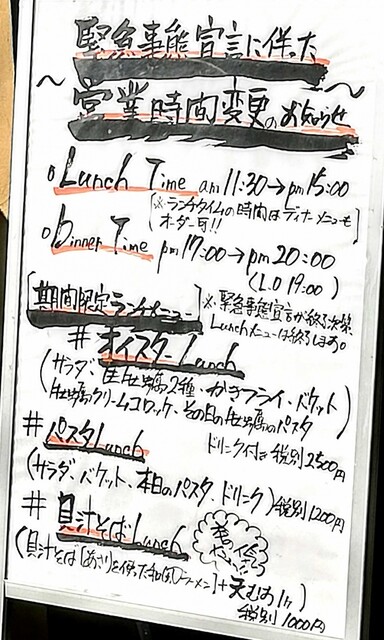 緊急事態宣言に伴った
～営業時間変更のお知らせ～
○Lunch Time am11:30→pm15:00
(※ランチタイムの時間はディナーメニューも
オーダー可!!)
○Dinner Time pm17:00→pm20:00
(L.O 19:00)
[期間限定ランチメニュー]
※緊急事態宣言が終る次第、
Lunchメニューは終了します。
#オイスターLunch
(サラダ、生牡蠣2種、かきフライ、バケット
牡蠣クリームコロッケ、その日の牡蠣のパスタ)
ドリンク付き 税別2500円
#パスタLunch
(サラダ、バケット、本日のパスタ、ドリンク) 税別1200円
#貝汁そばLunch
(貝汁そば[あさりを使った
ラーメン]+天むす1ヶ)
税別1000円